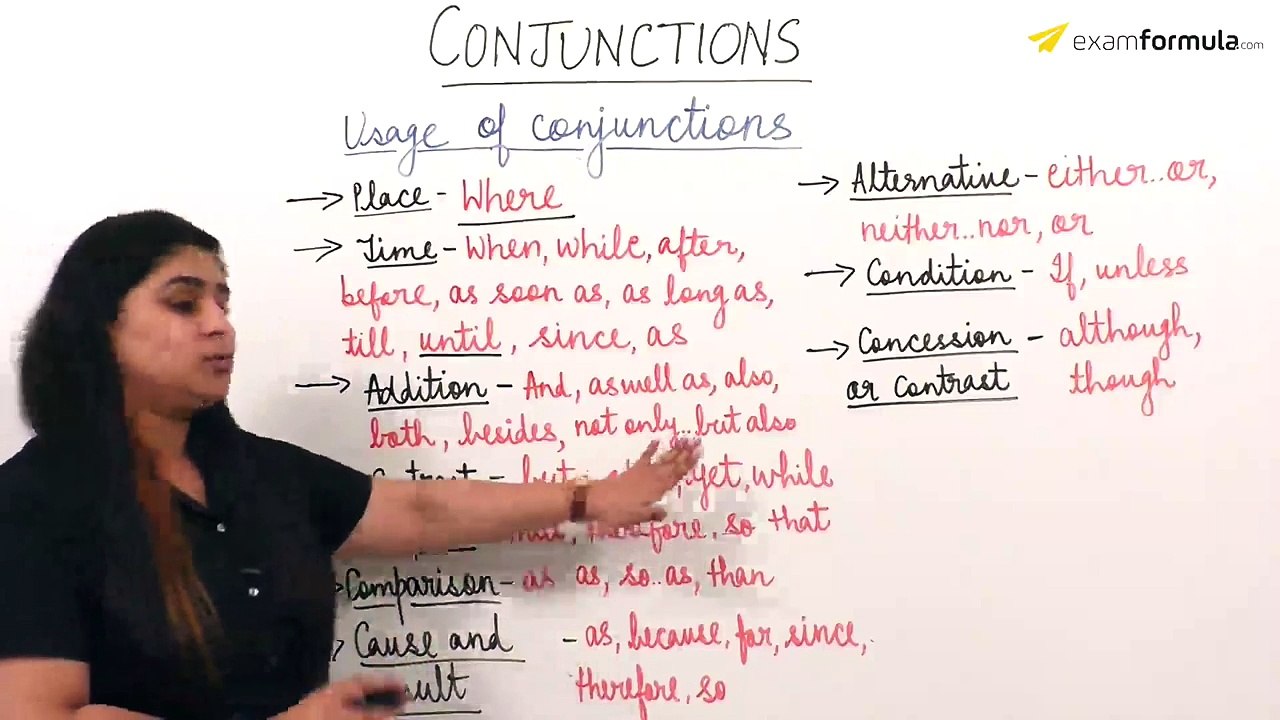 CONJUNCTIONS
examformula.com
Usage of conjunctions
→ Place - Where
→ Time - When, while, after,
before, as soon as, as long as,
till, until, since, as
→ Addition - And, aswell as, also,
both, besides, not only..but also
- but yet, while
therefore, so that
Comparison - as as, so..as, than
Cause and - as, because, for, since,
therefore, so
→ Alternative - either..or,
neither..nor, or
→ Condition - If, unless
→ Concession - although,
or Contrast though